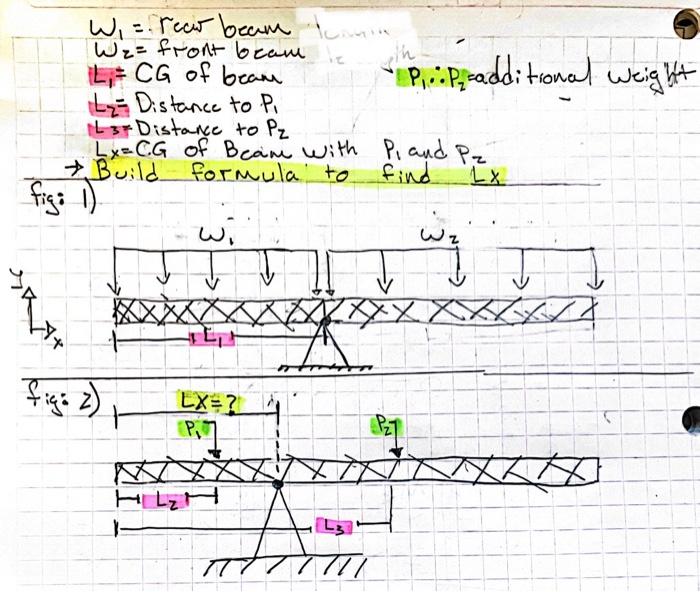 W₁ = rear beam
W₂ = front beam
L₁ = CG of beam
P₁ ∴ P₂ = additional weight
L₂ = Distance to P₁
L₃ = Distance to P₂
Lx = CG of Beam with P₁ and P₂
→ Build formula to find Lx
fig: 1)
W₁ W₂
y
x
L₁
fig: 2)
LX = ?
P₁ P₂
L₂
L₃